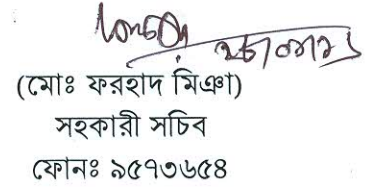 (মোঃ ফরহাদ মিঞা)
সহকারী সচিব
ফোনঃ ৯৫৭৩৬৫৪